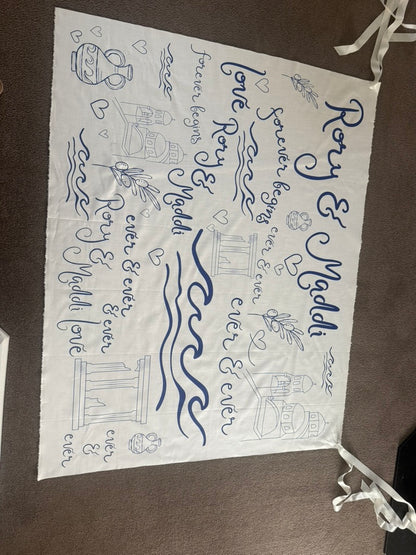 Rory & Maddi
forever begins ever & ever
love Rory & Maddi
ever & ever
forever begins
ever & ever & ever
Rory & Maddi love
ever
&
ever